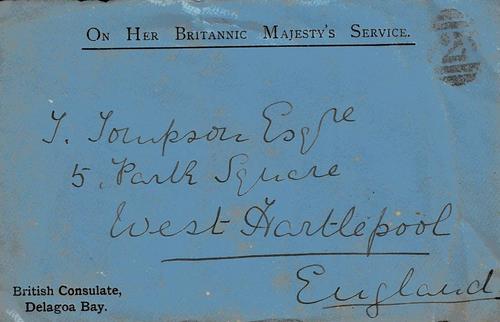 On Her Britannic Majesty's Service.
2
T. Tompson Esqre
5, Park Square
West Hartlepool
England
British Consulate,
Delagoa Bay.